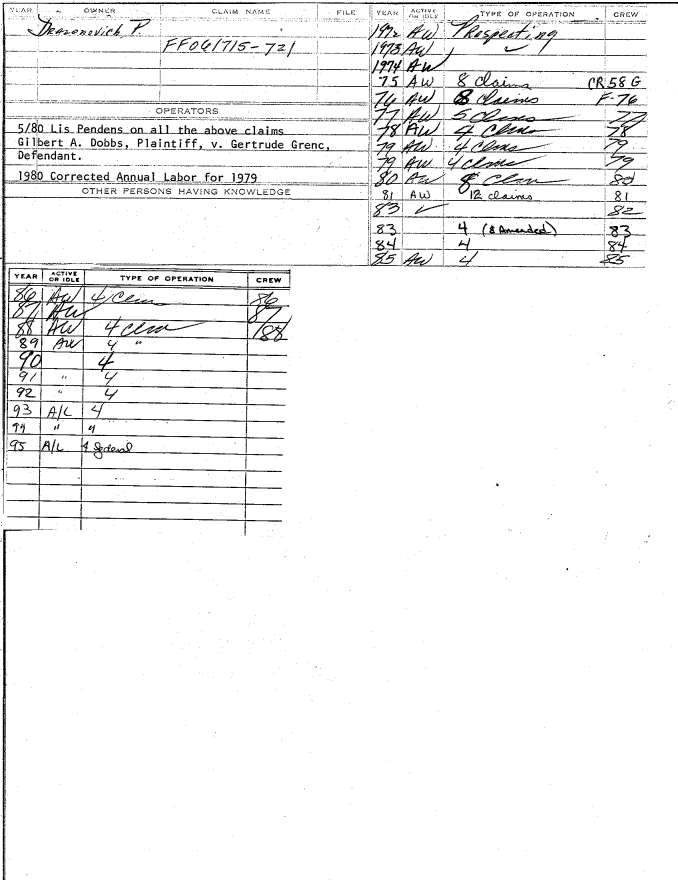 YEAR OWNER CLAIM NAME FILE
P.
FF061715-721
OPERATORS
5/80 Lis Pendens on all the above claims
Gilbert A. Dobbs, Plaintiff, v. Gertrude Grenc,
Defendant.
1980 Corrected Annual Labor for 1979
OTHER PERSONS HAVING KNOWLEDGE
YEAR ACTIVE OR IDLE TYPE OF OPERATION CREW
1972 AW Prospecting
1973 AW ✓
1974 AW
75 AW 8 claims CR 58 G
76 AW 8 claims F-76
77 AW 5 Claims 77
78 AW 4 Clms 78
79 AW 4 Clms 79
79 AW 4 Clms 79
80 AW 8 Clam 80
81 AW 12 claims 81
83 ✓ 82
83 4 (8 Amended) 83
84 4 84
85 AW 4 85
YEAR ACTIVE OR IDLE TYPE OF OPERATION CREW
86 AW 4 Clms 86
87 AW 87
88 AW 4 clm 88
89 AW 4 "
90 4
91 " 4
92 " 4
93 A/L 4
94 " 4
95 A/L 4 federal